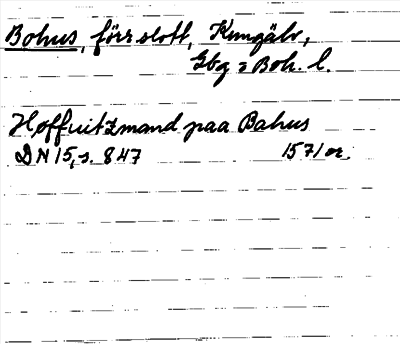 Bohus, förr slott, Kungälv,
Gbg o Boh. l.
Høffuitzmand paa Bahus
DN 15, s. 847 1571 or.